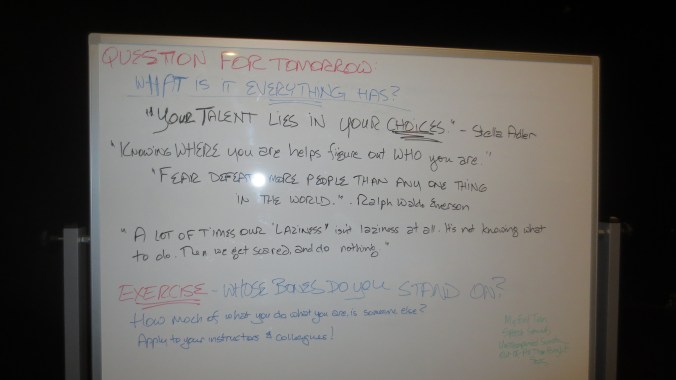 QUESTION FOR TOMORROW:
WHAT IS IT EVERYTHING HAS?
"YOUR TALENT LIES IN YOUR CHOICES." - Stella Adler
"KNOWING WHERE you are helps figure out WHO you are."
"FEAR DEFEATS MORE PEOPLE THAN ANY ONE THING
IN THE WORLD." - Ralph Waldo Emerson
"A LOT OF TIMES OUR 'LAZINESS' isn't laziness at all. It's not knowing what
to do. Then we get scared, and do nothing."
EXERCISE - WHOSE BONES DO YOU STAND ON?
How much of, what you do what you are, is someone else?
Apply to your instructors & colleagues!